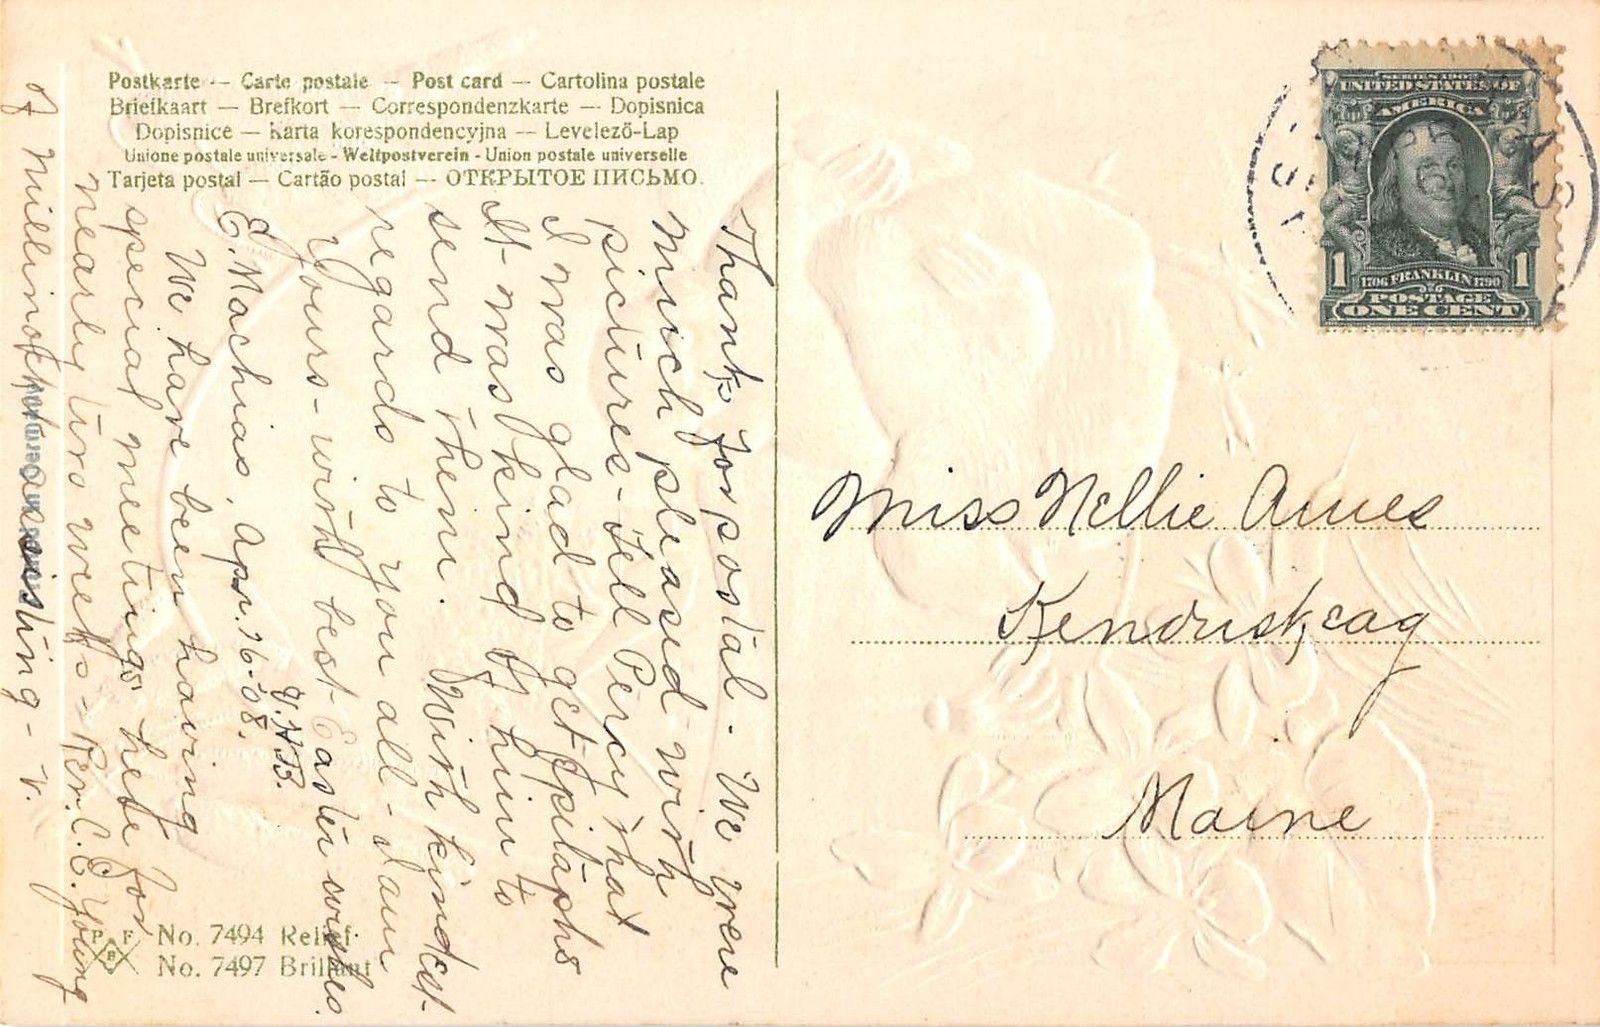 Postkarte — Carte postale — Post card — Cartolina postale
Briefkaart — Brefkort — Correspondenzkarte — Dopisnica
Dopisnice — Karta korespondencyjna — Levelező-Lap
Unione postale universale - Weltpostverein - Union postale universelle
Tarjeta postal — Cartão postal — ОТКРЫТОЕ ПИСЬМО.
Thanks for postal - We were
much pleased with
pictures - Tell Percy that
I was glad to get Epitaphs
It was kind of him to
send them. With kindest
regards to you all - I am
Yours - with best Easter wishes.
V. H. B.
E. Machias, Apr. 16-08.
We have been having
special meetings here for
nearly two weeks - Rev. C. E. Young
of Millinocket assisting - V.
No. 7494 Relief
No. 7497 Brillant
P F B
SERIES 1902
UNITED STATES OF
AMERICA
1 1706 FRANKLIN 1790 1
POSTAGE
ONE CENT
Miss Nellie Ames
Kenduskeag
Maine